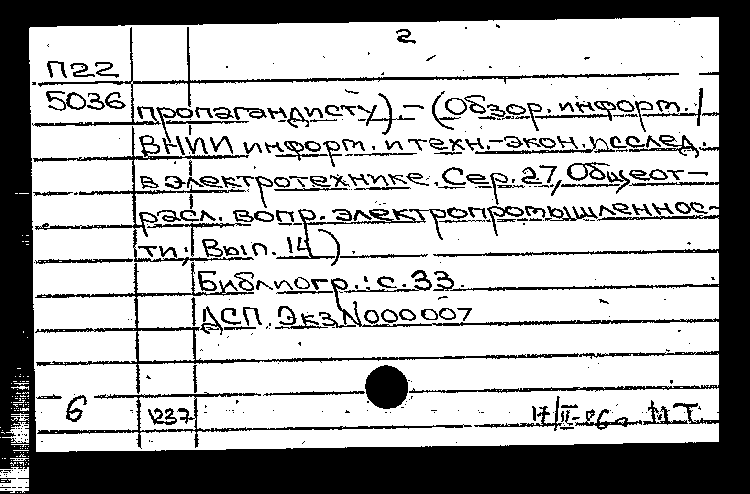 2
П22
5036 пропагандисту). – (Обзор. информ. /
ВНИИ информ. и техн.-экон. исслед.
в электротехнике. Сер. 27, Общеот-
расл. вопр. электропромышленнос-
ти; Вып. 14).
Библиогр.: с. 33.
ДСП. Экз N000007
6 1237 17/II-86 МТ